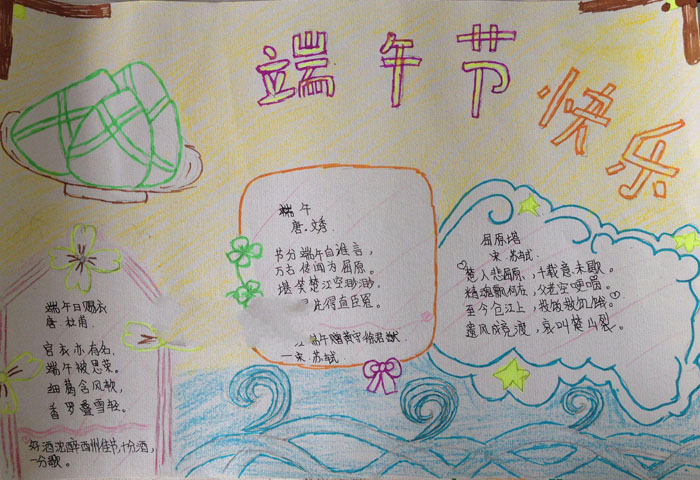 端午节
快乐
端午
唐.文秀.
节分端午自谁言,
万古传闻为屈原。
堪笑楚江空渺渺,
洗得直臣冤
端午赠黄守徐君猷
一宋.苏轼
屈原塔
宋.苏轼.
楚人悲屈原,千载意未歇。
精魂飘何在,父老空哽咽。
至今仓江上,投饭救饥渴。
遗风成竞渡,哀叫楚山裂。
端午日赐衣
唐.杜甫.
宫衣亦有名,
端午被恩荣。
细葛含风软,
香罗叠雪轻。
好酒沈醉西州佳节,十分酒,
一分歌。